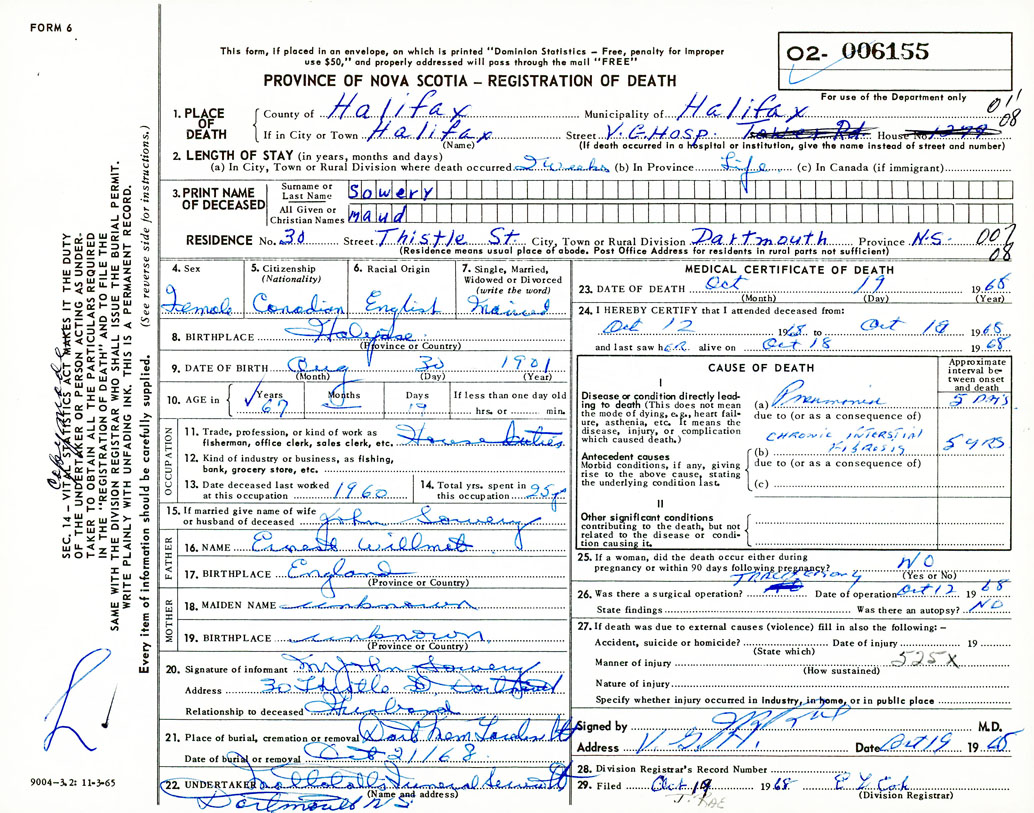 FORM 6
This form, if placed in an envelope, on which is printed "Dominion Statistics – Free, penalty for improper
use $50," and properly addressed will pass through the mail "FREE"
O2- 006155
PROVINCE OF NOVA SCOTIA – REGISTRATION OF DEATH
For use of the Department only
011
08
1. PLACE OF DEATH
County of Halifax Municipality of Halifax
If in City or Town Halifax Street V.G. HOSP. Tower Rd. House No. 1278
(Name) (If death occurred in a hospital or institution, give the name instead of street and number)
2. LENGTH OF STAY (in years, months and days)
(a) In City, Town or Rural Division where death occurred 2 weeks (b) In Province Life (c) In Canada (if immigrant)
3. PRINT NAME OF DECEASED
Surname or Last Name Sowery
All Given or Christian Names maud
RESIDENCE No. 30 Street Thistle St. City, Town or Rural Division Dartmouth Province N.S. 007
08
(Residence means usual place of abode. Post Office Address for residents in rural parts not sufficient)
4. Sex
Female
5. Citizenship
(Nationality)
Canadian
6. Racial Origin
English
7. Single, Married,
Widowed or Divorced
(write the word)
Married
8. BIRTHPLACE
(Province or Country)
9. DATE OF BIRTH Aug 30 1901
(Month) (Day) (Year)
10. AGE in Years Months Days If less than one day old
67 19 hrs. or min.
OCCUPATION
11. Trade, profession, or kind of work as
fisherman, office clerk, sales clerk, etc. House Duties
12. Kind of industry or business, as fishing,
bank, grocery store, etc.
13. Date deceased last worked
at this occupation 1960
14. Total yrs. spent in
this occupation 25y
15. If married give name of wife
or husband of deceased John Sowery
FATHER
16. NAME Ernest Willmet
17. BIRTHPLACE England
(Province or Country)
MOTHER
18. MAIDEN NAME unknown
19. BIRTHPLACE unknown
(Province or Country)
20. Signature of informant Mr John Sowery
Address 30 Thistle St Dartmouth
Relationship to deceased Husband
21. Place of burial, cremation or removal Dart Mem Gardens
Date of burial or removal Oct 21/68
22. UNDERTAKER Funeral Service
(Name and address)
Dartmouth N.S.
MEDICAL CERTIFICATE OF DEATH
23. DATE OF DEATH Oct 19 1968
(Month) (Day) (Year)
24. I HEREBY CERTIFY that I attended deceased from:
Oct 12 1968 to Oct 19 1968
and last saw her alive on Oct 18 1968
CAUSE OF DEATH
Approximate
interval be-
tween onset
and death
I
Disease or condition directly lead-
ing to death (This does not mean
the mode of dying, e.g., heart fail-
ure, asthenia, etc. It means the
disease, injury, or complication
which caused death.)
(a) Pneumonia 5 DAYS
due to (or as a consequence of)
Antecedent causes
Morbid conditions, if any, giving
rise to the above cause, stating
the underlying condition last.
CHRONIC INTERSTIAL
(b) FIBROSIS 5 yrs
due to (or as a consequence of)
(c)
II
Other significant conditions
contributing to the death, but not
related to the disease or condi-
tion causing it.
25. If a woman, did the death occur either during
pregnancy or within 90 days following pregnancy? NO
(Yes or No)
TRACHEOSTOMY
26. Was there a surgical operation? Date of operation Oct 12 1968
State findings Was there an autopsy? NO
27. If death was due to external causes (violence) fill in also the following: –
Accident, suicide or homicide? Date of injury 19
(State which)
Manner of injury 525X
(How sustained)
Nature of injury
Specify whether injury occurred in Industry, in home, or in public place
Signed by M.D.
Address V.G.H. Date Oct 19 1968
28. Division Registrar's Record Number
29. Filed Oct. 19 1968
(Division Registrar)
SEC. 14 – VITAL STATISTICS ACT MAKES IT THE DUTY
OF THE UNDERTAKER OR PERSON ACTING AS UNDER-
TAKER TO OBTAIN ALL THE PARTICULARS REQUIRED
IN THE "REGISTRATION OF DEATH" AND TO FILE THE
SAME WITH THE DIVISION REGISTRAR WHO SHALL ISSUE THE BURIAL PERMIT.
WRITE PLAINLY WITH UNFADING INK. THIS IS A PERMANENT RECORD.
Every item of information should be carefully supplied. (See reverse side for instructions.)
9004-3.2: 11-3-65